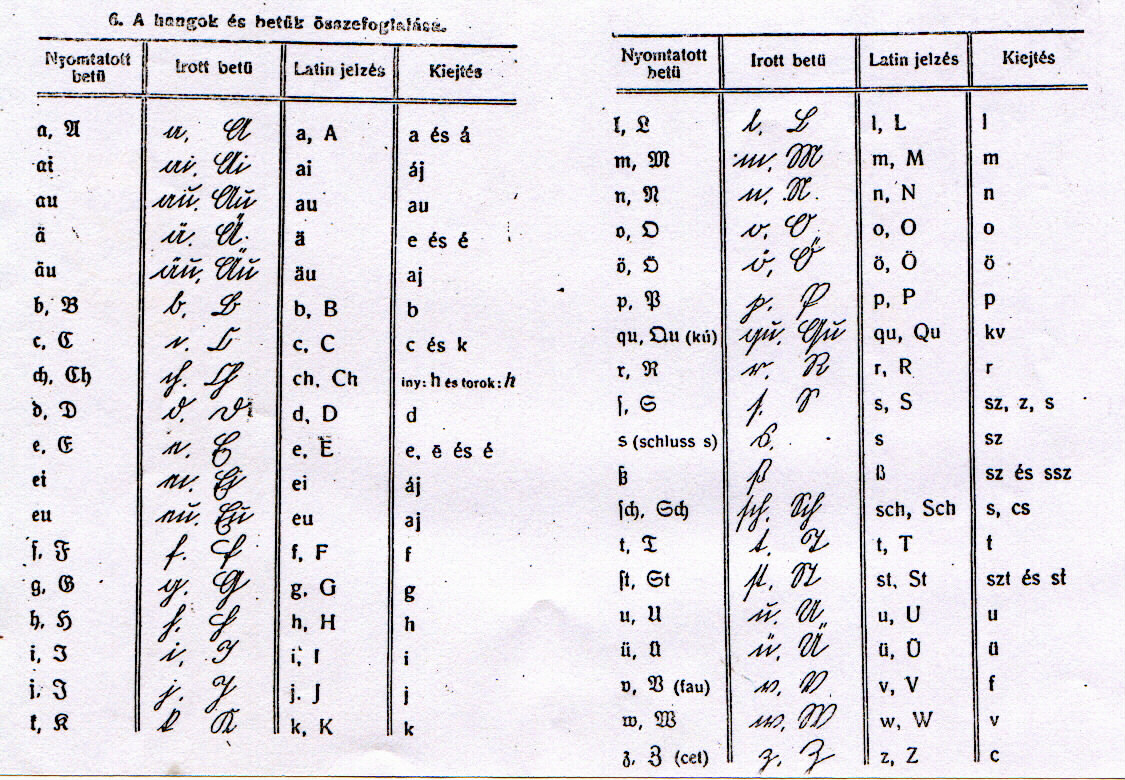 6. A hangok és betűk összefoglalása.
Nyomtatott betű Irott betű Latin jelzés Kiejtés
a, A a, A a, A a és á
ai ai, Ai ai áj
au au, Au au au
ä ä, Ä ä e és é
äu äu, Äu äu aj
b, B b, B b, B b
c, C c, C c, C c és k
ch, Ch ch, Ch ch, Ch iny: h és torok: h
d, D d, D d, D d
e, E e, E e, E e, ë és é
ei ei, Ei ei áj
eu eu, Eu eu aj
f, F f, F f, F f
g, G g, G g, G g
h, H h, H h, H h
i, I i, I i, I i
j, J j, J j, J j
k, K k K k, K k
Nyomtatott betű Irott betű Latin jelzés Kiejtés
l, L l, L l, L l
m, M m, M m, M m
n, N n, N n, N n
o, O o, O o, O o
ö, Ö ö, Ö ö, Ö ö
p, P p, P p, P p
qu, Qu (kú) qu, Qu qu, Qu kv
r, R r, R r, R r
ſ, S ſ, S s, S sz, z, s
s (schluss s) s. s sz
ß ß ß sz és ssz
ſch, Sch ſch, Sch sch, Sch s, cs
t, T t, T t, T t
ſt, St ſt, St st, St szt és st
u, U u, U u, U u
ü, Ü ü, Ü ü, Ü ü
v, V (fau) v, V v, V f
w, W w, W w, W v
z, Z (cet) z, Z z, Z c